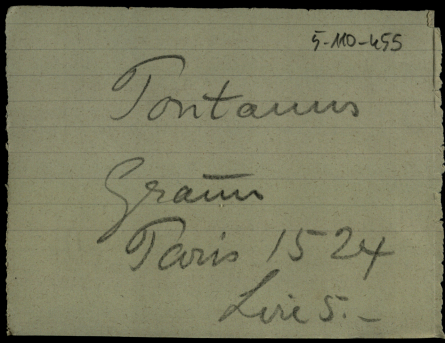 5-110-455
Pontanus
Gram̅
Paris 1524
Lire 5.-